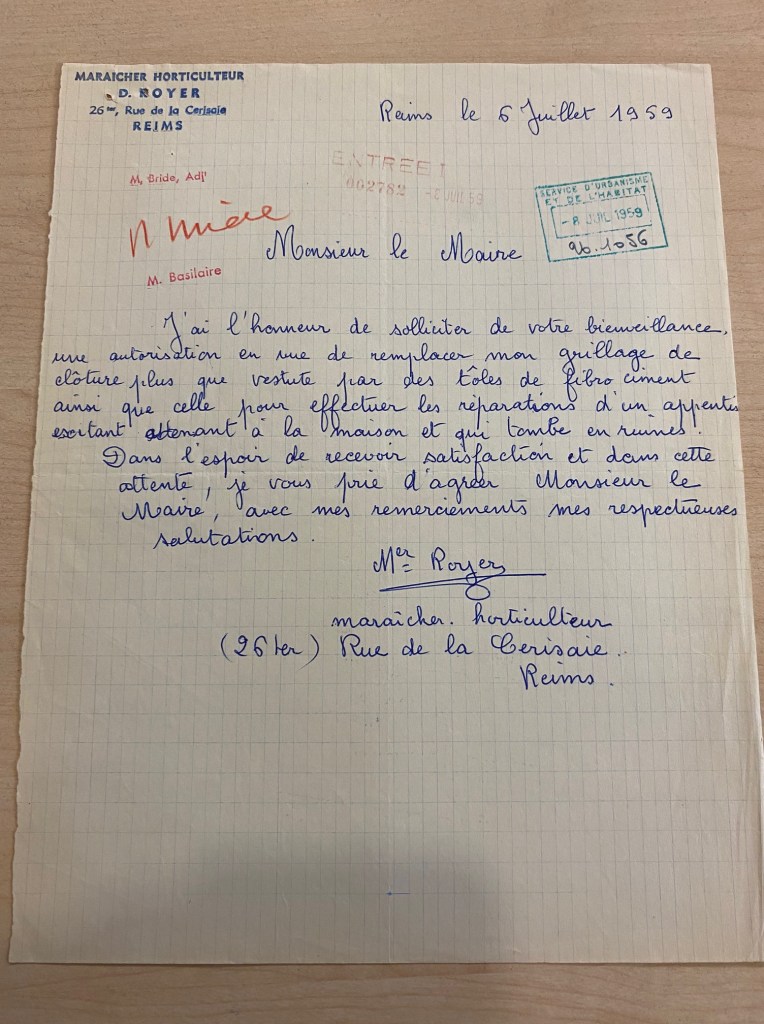 MARAICHER HORTICULTEUR
D. ROYER
26 ter, Rue de la Cerisaie
REIMS
Reims le 6 Juillet 1959
ENTREE 1
002782 -8 JUIL 59
M. Bride, Adjt
SERVICE D'URBANISME
ET DE L'HABITAT
-8 JUIL 1959
96.1056
Monsieur le Maire
M. Basilaire
J'ai l'honneur de solliciter de votre bienveillance,
une autorisation en vue de remplacer mon grillage de
clôture plus que vestute par des tôles de fibro ciment
ainsi que celle pour effectuer les réparations d'un appentis
existant attenant à la maison et qui tombe en ruines.
Dans l'espoir de recevoir satisfaction et dans cette
attente, je vous prie d'agréer Monsieur le
Maire, avec mes remerciements mes respectueuses
salutations.
Mer Royer
maraîcher. horticulteur
(26 ter) Rue de la Cerisaie.
Reims.